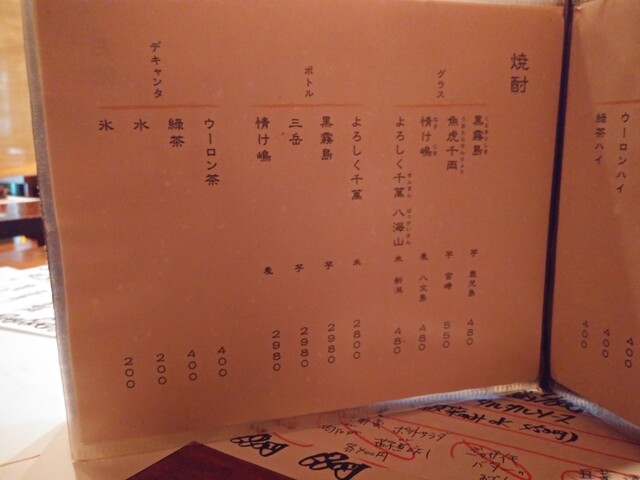 焼酎
グラス
黒霧島 芋 鹿児島 480
魚虎千両 芋 宮崎 550
情け嶋 麦 八丈島 480
よろしく千萬 八海山 米 新潟 480
ボトル
よろしく千萬 米 2800
黒霧島 芋 2980
三岳 芋 2980
情け嶋 麦 2980
デキャンタ
ウーロン茶 400
緑茶 400
水 200
氷 200
ウーロンハイ 400
緑茶ハイ 400
400